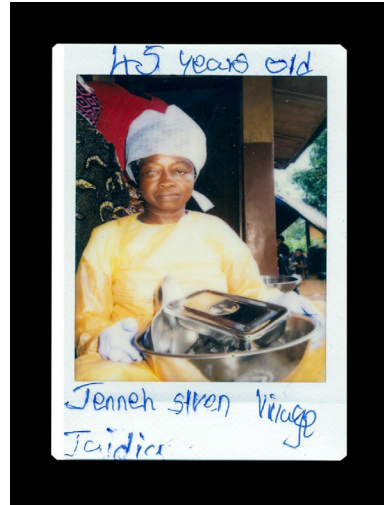 45 years old
Jenneh stven Village
Jaidia